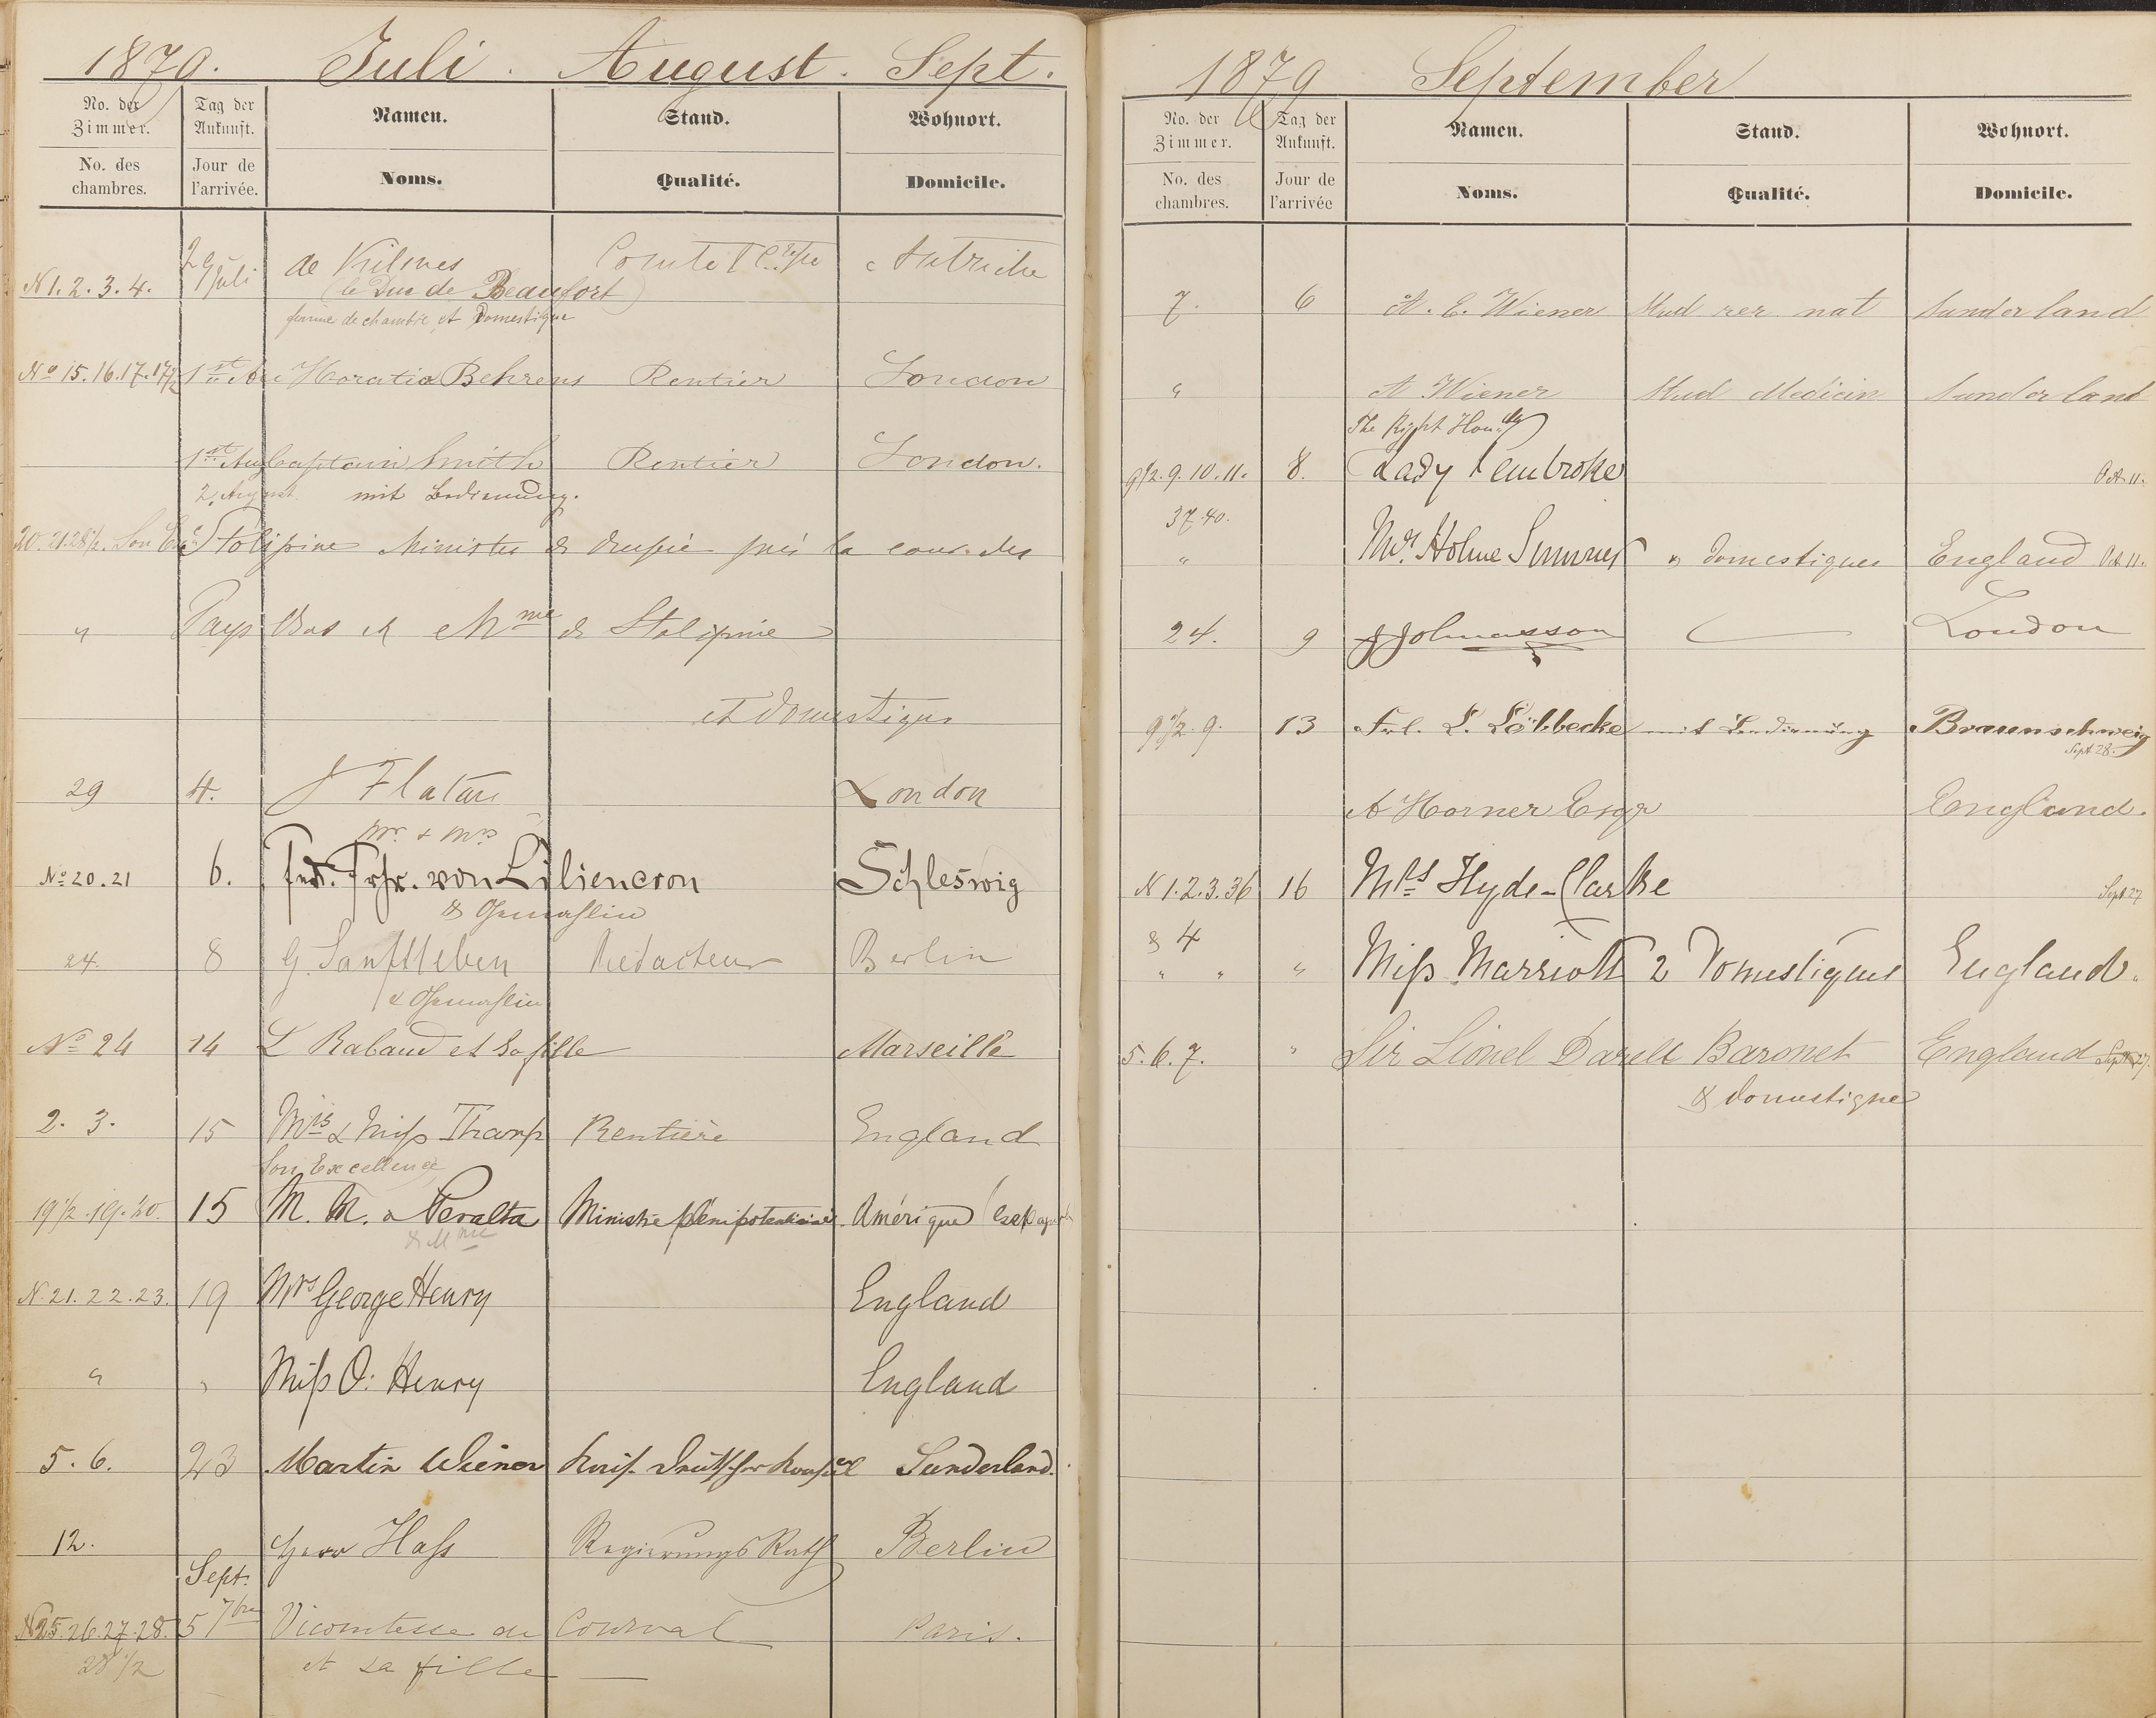 1879. Juli. August. Sept.
No. der Zimmer. Tag der Ankunft. Namen. Stand. Wohnort.
No. des chambres. Jour de l'arrivée. Noms. Qualité. Domicile.
N 1. 2. 3. 4. 29 Juli de Comte Autriche
(le Duc de Beaufort)
femme de chambre et Domestique
No 15. 16. 17. 17 1/2 1st Horatio Behrens Rentier London
1st Aug Captain Smith Rentier London.
2. August. mit Bedienung.
20. 21. 28 1/2. Son Stolipine Ministre de Russie près la cour des
" Pays Bas et Mme de Stolipine
et Domestique
29 4. J Flatau London
Mr & Mrs
No 20. 21 6. Frhr. von Liliencron Schleswig
& Gemahlin
24. 8 G. Sanftleben Redacteur Berlin
& Gemahlin
No 24 14 L Rabaud et sa fille Marseille
2. 3. 15 Mrs & Miss Tharp Rentière England
Son Excellence
19 1/2. 19. 20. 15 M. M. de Peralta Ministre plénipotentiaire Amérique
& Mme
N. 21. 22. 23. 19 Mrs George Henry England
" " Miss O. Henry England
5. 6. 23 Martin Wiener Kais. Deutscher Konsul Sunderland.
12. Herr Hass Regierungs Rath Berlin
Sept.
No 25. 26. 27. 28. 5 7bre Vicomtesse de Courval Paris.
28 1/2 et sa fille
1879 September
No. der Zimmer. Tag der Ankunft. Namen. Stand. Wohnort.
No. des chambres. Jour de l'arrivée Noms. Qualité. Domicile.
7. 6 A. E. Wiener Stud rer nat Sunderland
" A Wiener Stud Medicin Sunderland
The Right Honble
9 1/2. 9. 10. 11. 8. Lady Pembroke Oct 11.
37. 40.
" Mrs Holme Sumner & Domestiques England Oct 11.
24. 9 J Johnasson London
9 1/2. 9. 13 Frl. L. Löbbecke mit Bedienung Braunschweig
Sept 28.
A Horner Esqr England.
N 1. 2. 3. 36 16 Mrs Hyde-Clarke Sept 27
& 4
" " " Miss Marriott 2 Domestiques England.
5. 6. 7. " Sir Lionel Darell Baronet England Sept 27.
& domestique